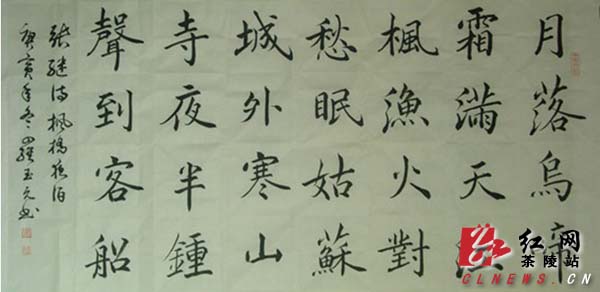 月落烏啼
霜滿天
楓漁火對
愁眠姑蘇
城外寒山
寺夜半鍾
聲到客船
張繼詩楓橋夜泊
庚寅年冬羅玉元书
红网
茶陵站
CLNEWS.CN